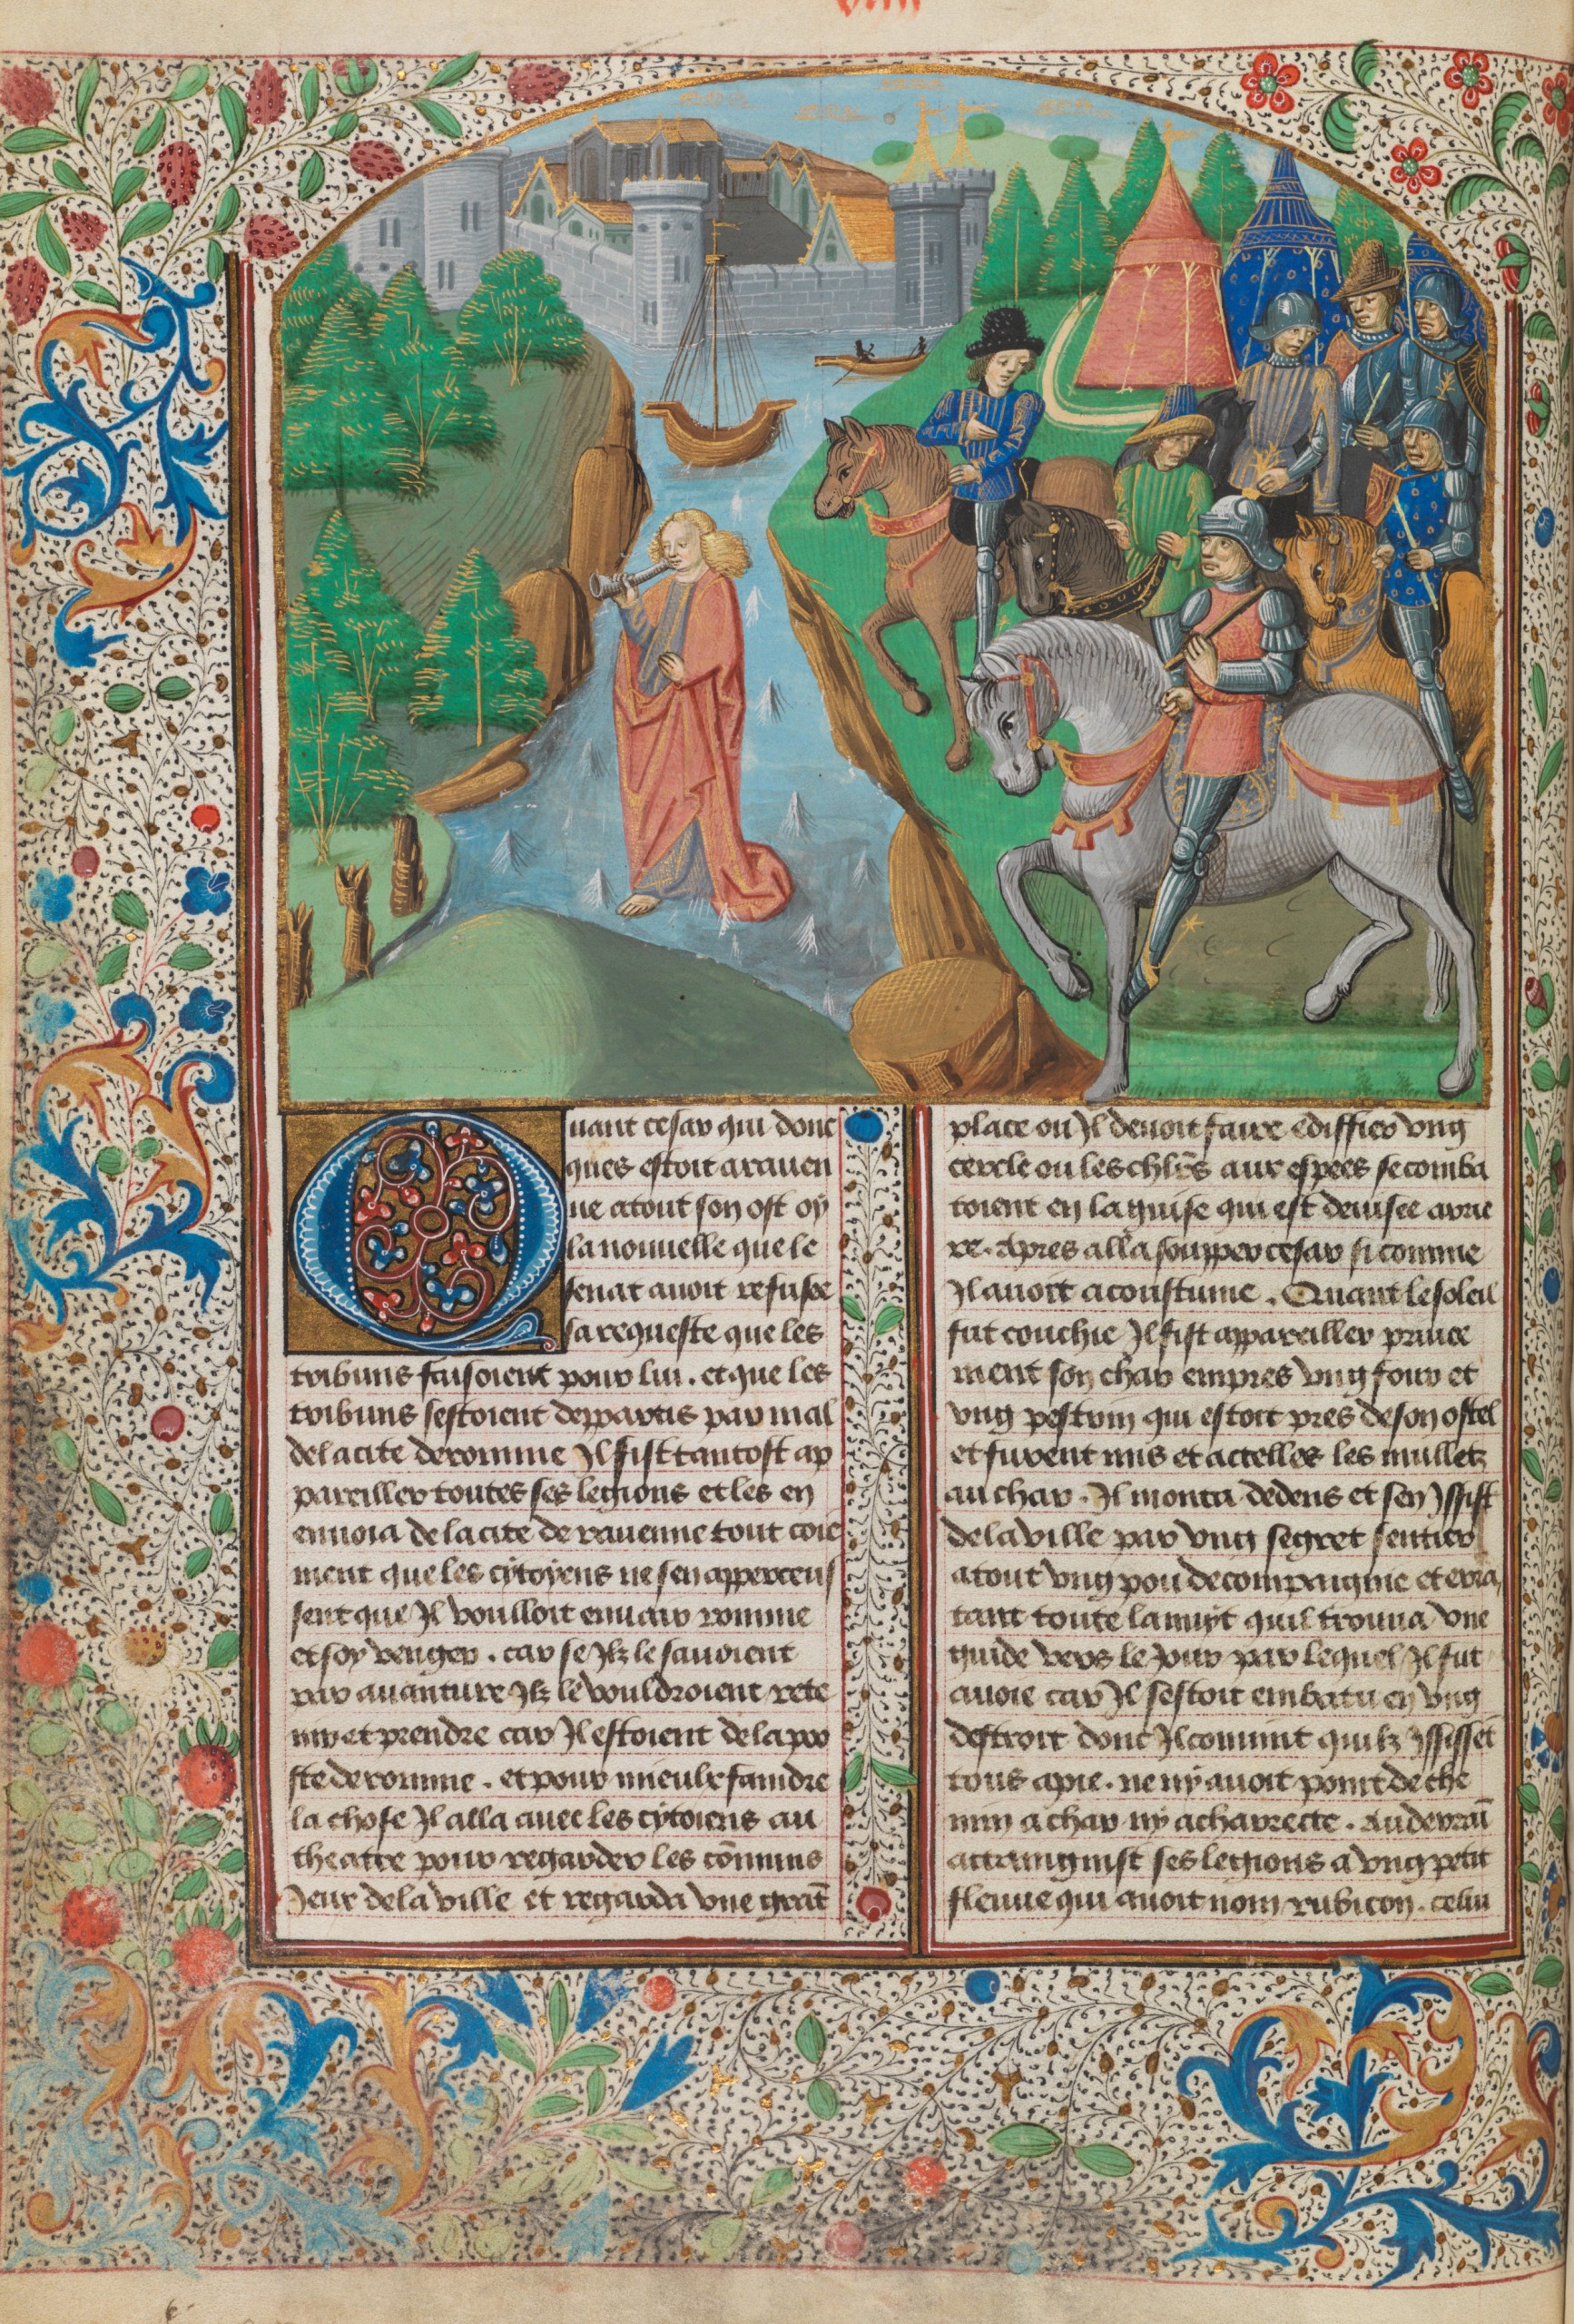 Quant cesar qui donc
ques estoit a raven
ne a tout son ost oÿ
la nouvelle que le
senat avoit refuse
sa requeste que les
tribuns faisoient pour lui. et que les
tribuns sestoient deppartis par mal
de la cite de romme Il fist tantost ap
pareiller toutes ses legions et les en
envoia de la cite de ravenne tout coie
ment que les cytoyens ne sen apperceus
sent que Il voulloit envair romme
et soy venger. car se Ilz le savoient
par avanture Ilz le vouldroient rete
nir et prendre car Il estoient de la poo
ste de romme. et pour mieulx faindre
la chose Il alla avec les cytoiens au
theatre pour regarder les cõmuns
Ieux de la ville et regarda une grãt
place ou Il devoit faire ediffier ung
cercle ou les chlr̃s aux espees se comba
toient en la guise qui est devisee arrie
re. Apres alla soupper cesar si comme
Il avoit acoustume. Quant le soleil
fut couchie Il fist appareiller privee
ment son char empres ung four et
ung pestrin qui estoit pres de son ostel
et furent mis et actelles les mulletz
au char. Il monta dedens et sen Issist
de la ville par ung segret sentier
a tout ung pou de compaignie et erra
tant toute la nuyt quil trouva une
guide vers le Jour par lequel Il fut
avoie car Il sestoit embatu en ung
destroit dont Il convint quilz yssisset
tous a pie. ne ny avoit point de che
min a char ny a charrecte. Au derrai
actaingnist ses legions a ung petit
fleuve qui avoit nom rubicon. celui